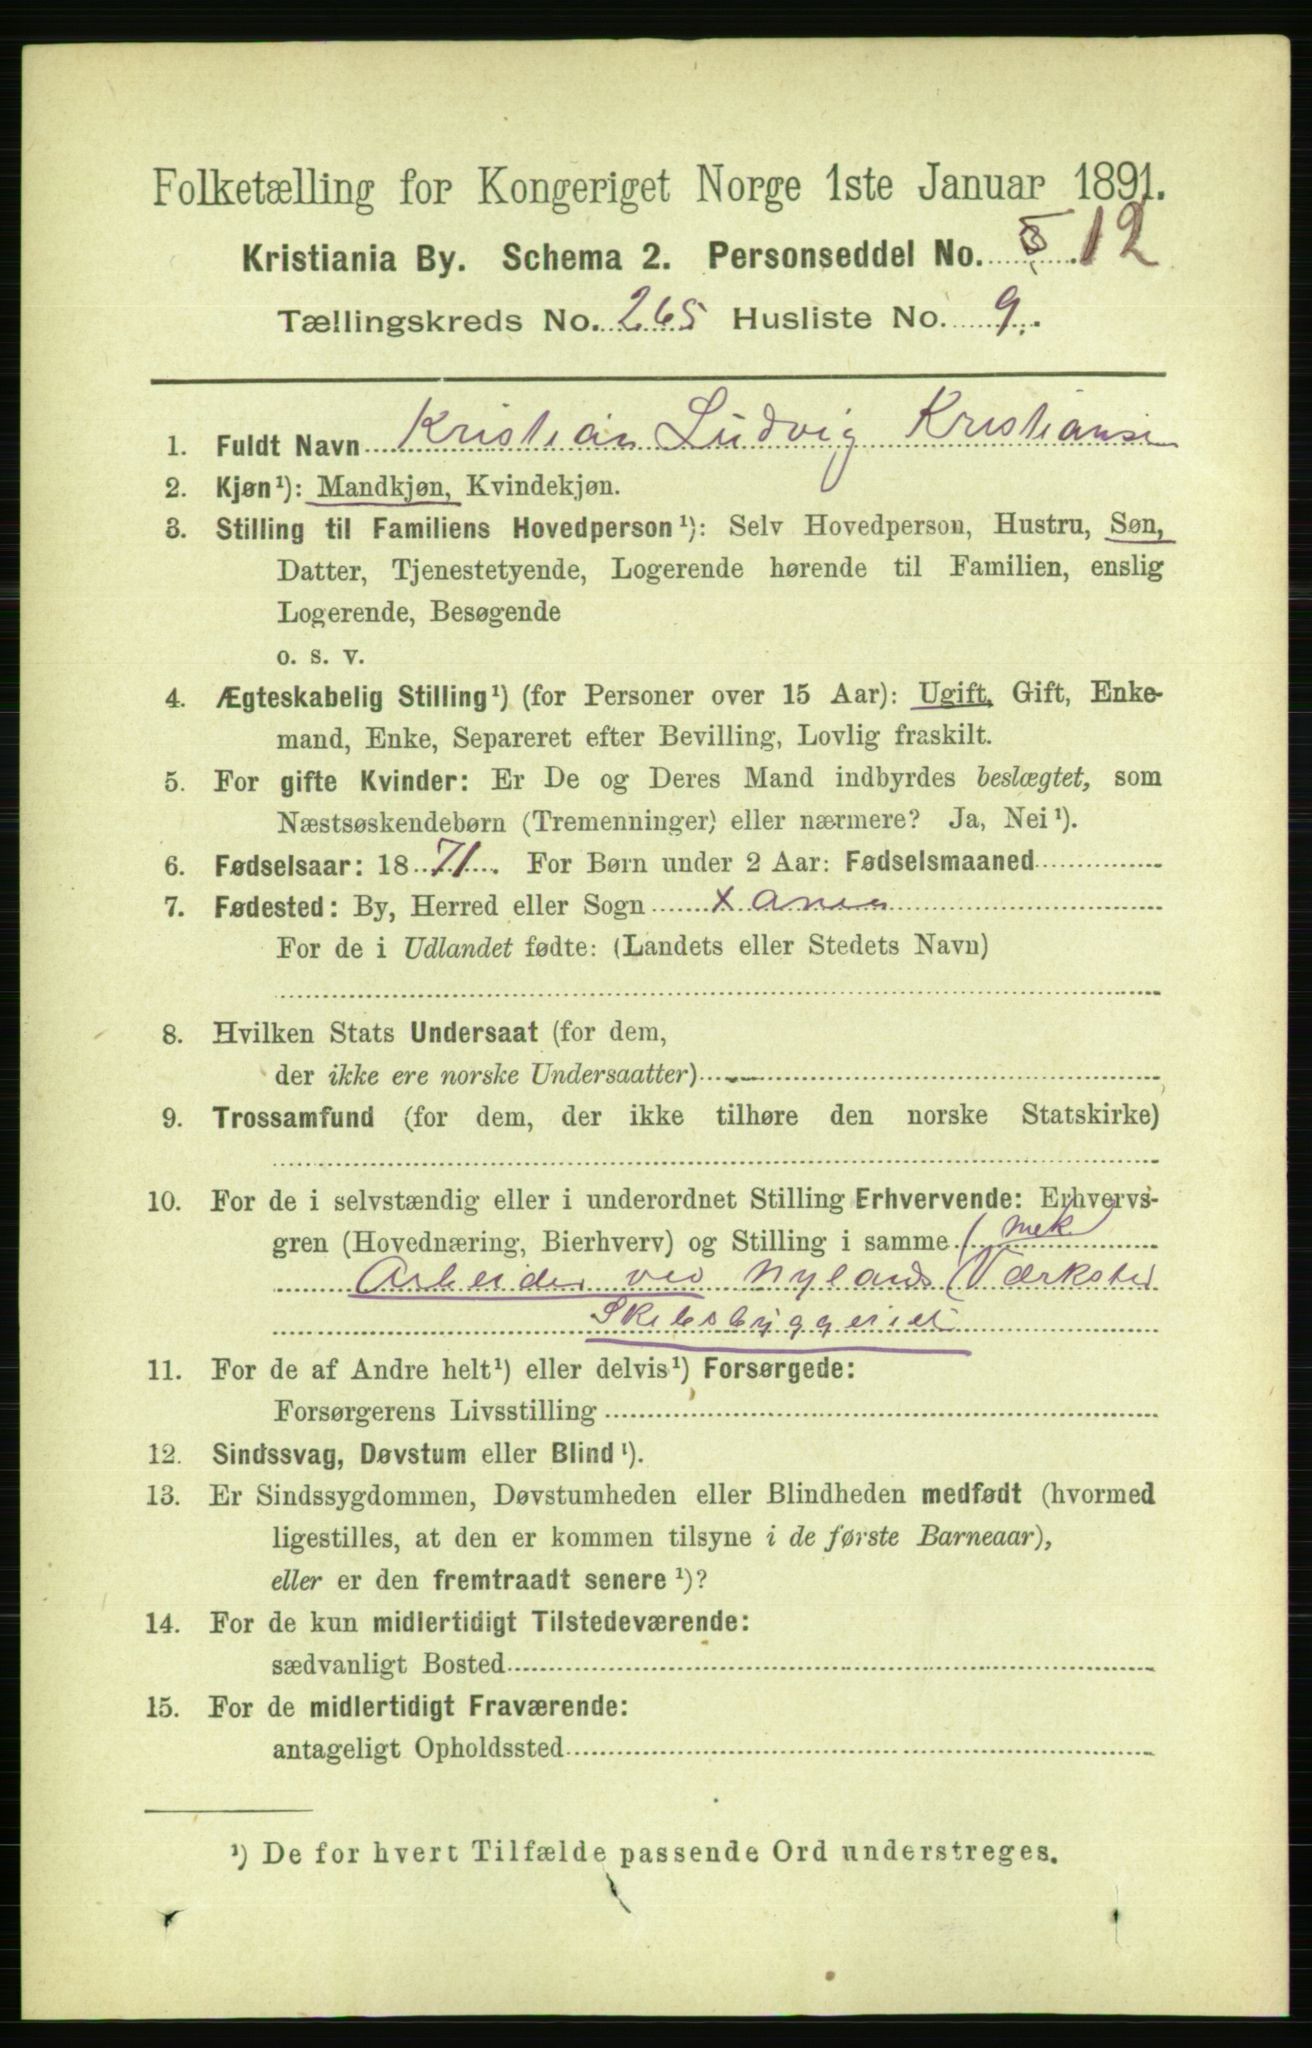 Folketælling for Kongeriget Norge 1ste Januar 1891.
Kristiania By. Schema 2. Personseddel No. 12
Tællingskreds No. 265 Husliste No. 9.
1. Fuldt Navn Kristian Ludvig Kristiansen
2. Kjøn¹): Mandkjøn, Kvindekjøn.
3. Stilling til Familiens Hovedperson¹): Selv Hovedperson, Hustru, Søn,
Datter, Tjenestetyende, Logerende hørende til Familien, enslig
Logerende, Besøgende
o. s. v.
4. Ægteskabelig Stilling¹) (for Personer over 15 Aar): Ugift, Gift, Enke-
mand, Enke, Separeret efter Bevilling, Lovlig fraskilt.
5. For gifte Kvinder: Er De og Deres Mand indbyrdes beslægtet, som
Næstsøskendebørn (Tremenninger) eller nærmere? Ja, Nei¹).
6. Fødselsaar: 1871. For Børn under 2 Aar: Fødselsmaaned
7. Fødested: By, Herred eller Sogn Xania
For de i Udlandet fødte: (Landets eller Stedets Navn)
8. Hvilken Stats Undersaat (for dem,
der ikke ere norske Undersaatter)
9. Trossamfund (for dem, der ikke tilhøre den norske Statskirke)
10. For de i selvstændig eller i underordnet Stilling Erhvervende: Erhvervs-
gren (Hovednæring, Bierhverv) og Stilling i samme (mek
Arbeider ved Nylands (Værksted
Skibsbyggeriet
11. For de af Andre helt¹) eller delvis¹) Forsørgede:
Forsørgerens Livsstilling
12. Sindssvag, Døvstum eller Blind¹).
13. Er Sindssygdommen, Døvstumheden eller Blindheden medfødt (hvormed
ligestilles, at den er kommen tilsyne i de første Barneaar),
eller er den fremtraadt senere¹)?
14. For de kun midlertidigt Tilstedeværende:
sædvanligt Bosted
15. For de midlertidigt Fraværende:
antageligt Opholdssted
¹) De for hvert Tilfælde passende Ord understreges.